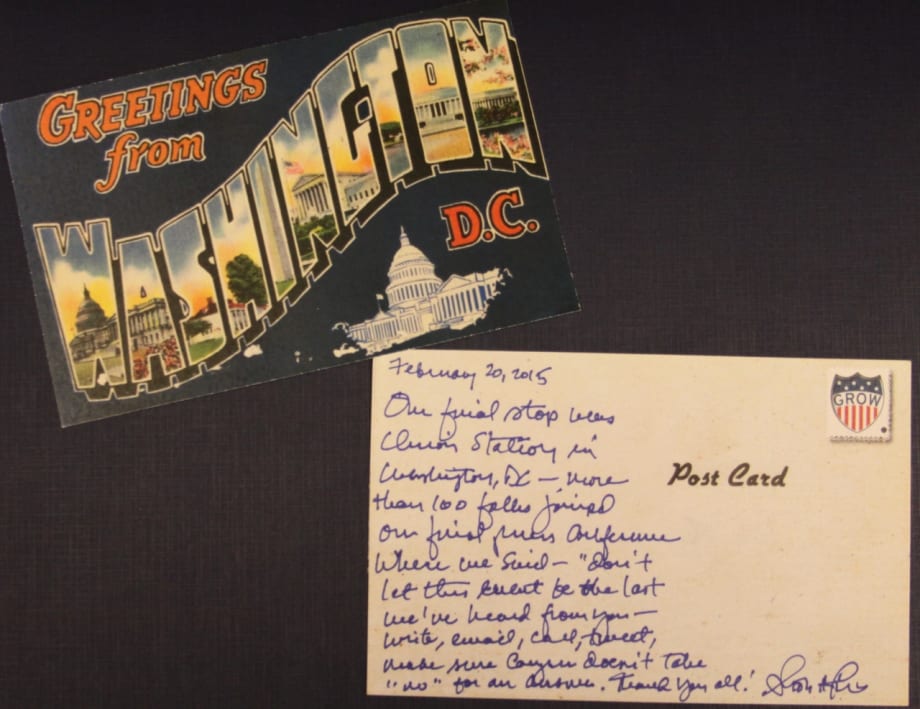 GREETINGS
from
WASHINGTON
D.C.
February 20, 2015
Our final stop was
Union Station in
Washington, DC – more
than 100 folks joined
our final press conference
where we said – "don't
let this event be the last
we've heard from you –
write, email, call, tweet,
make sure Congress doesn't take
"no" for an answer. Thank you all!
GROW
Post Card